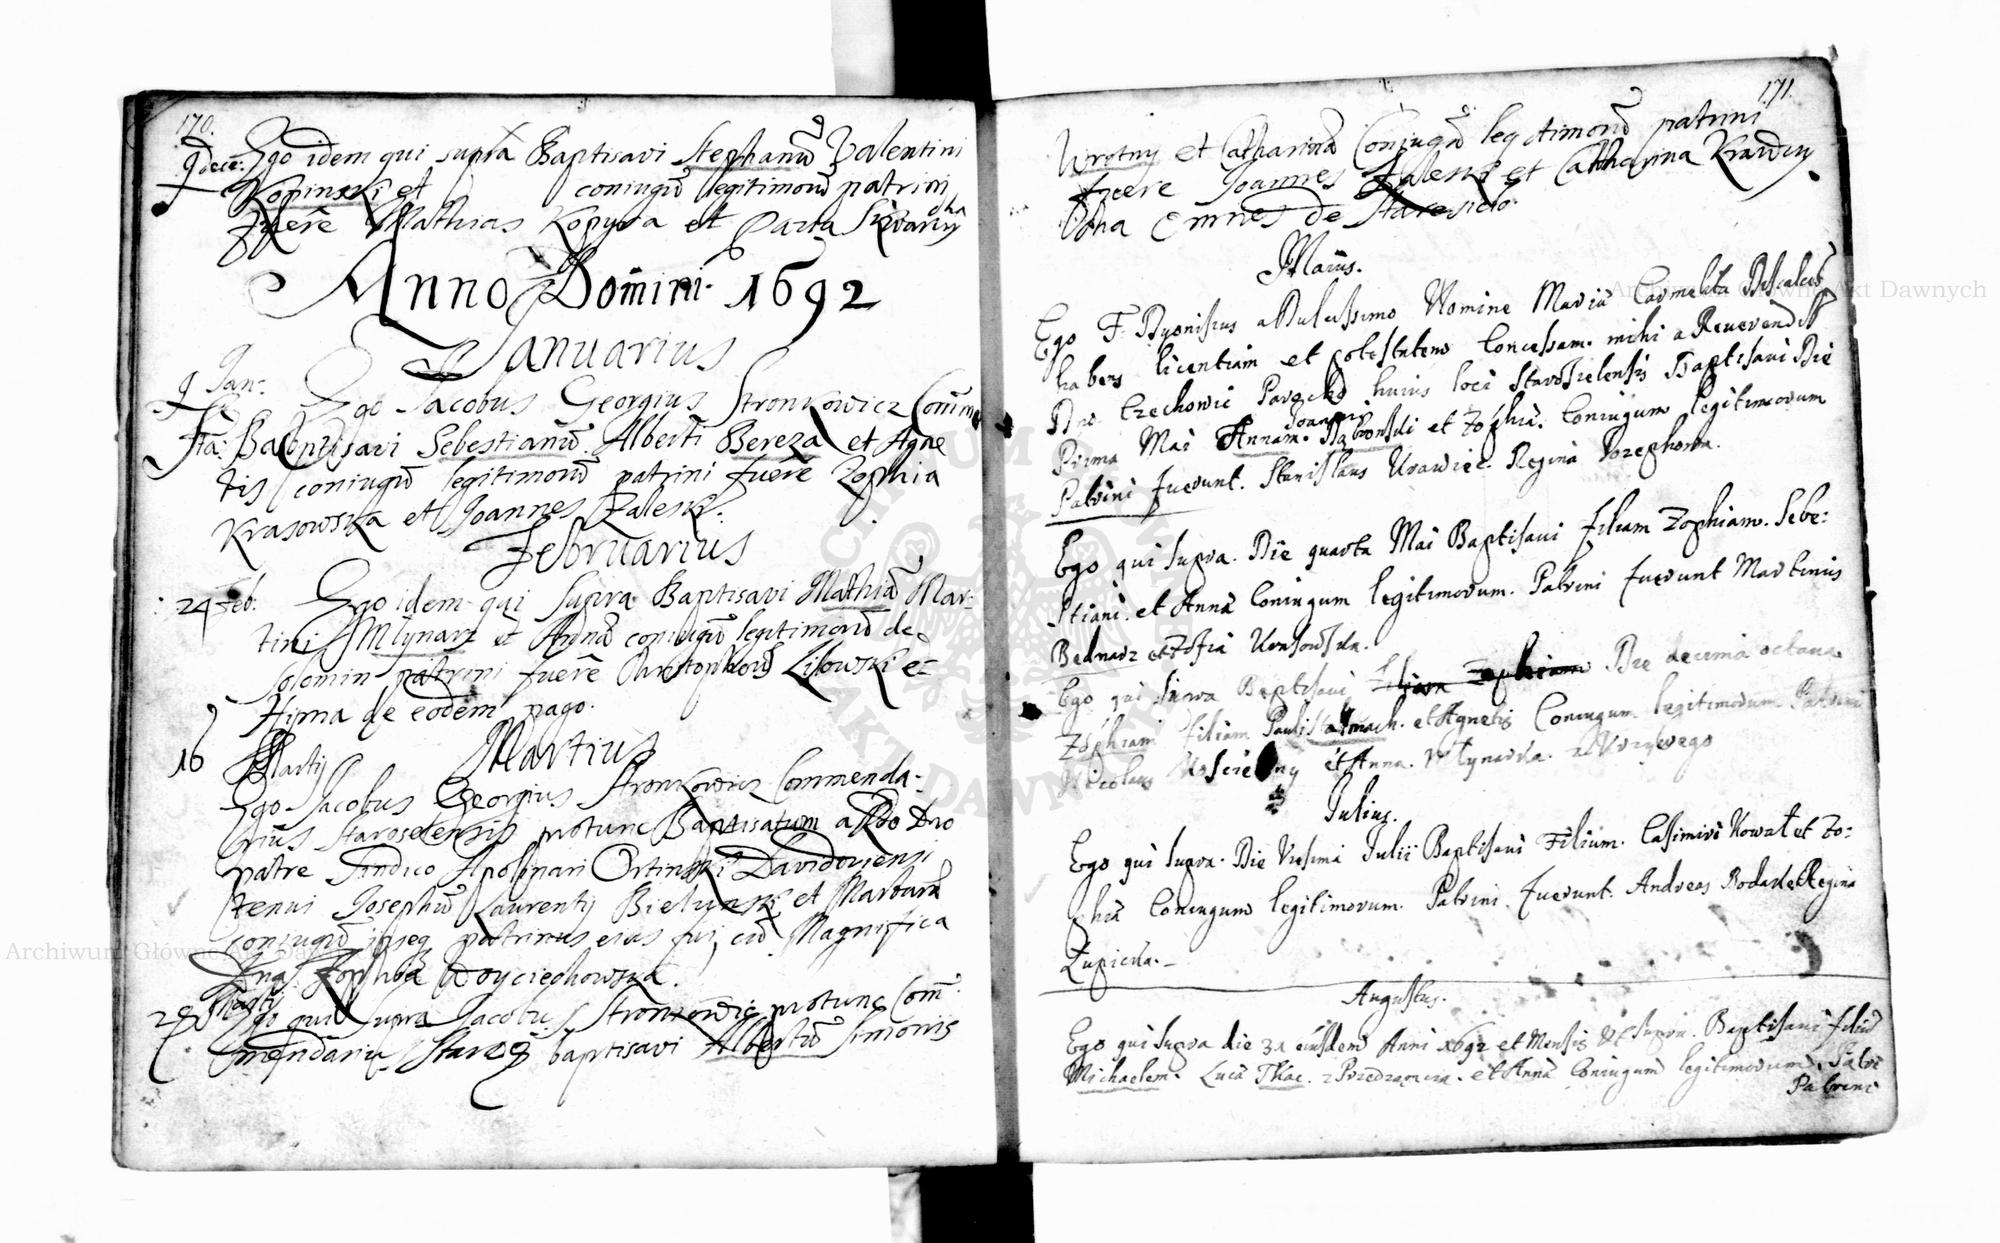 170.
9 dece: Ego idem qui supra Baptisavi Stephanū Valentini
Kopinski et coniugū legitimorū patrini
fuere Mathias Kopyra et
Anno Domini 1692
Januarius
9 Jan: Ego Jacobus Georgius Stronkowicz Comm
Sta: Baptisavi Sebestianū Alberti Bereza et Agne
tis coniugū legitimorū patrini fuere Zophia
Krasowska et Joannes Zaleski.
Februarius
24 Feb: Ego idem qui supra Baptisavi Mathiā Mar:
tini Mlynarz et Annæ coniugū legitimorū de
Solomin patrini fuere Lisowski e=
de eodem pago.
16 Martij Martius
Ego Jacobus Georgius Stronkowicz Commenda-
rius Staroselensis protunc Baptisatum a Rdo Dno
patre Apolinari Davidoviensi
tenui Josephū Laurentij Bielynski et Barbaræ
coniugū patrinus eius fui cū Magnifica
Zophia Woyciechowska.
28 Martij Ego qui supra Jacobus Stronkowic protunc Com
mendariu baptisavi Albertū Simonis
171.
Wrotny et Catharinæ Coniugū legittimorū patrini
fuere Joannes Zaleski et Catharina Krawcy
Omnes de Staresiolo.
Maius.
Ego F. Dyonisius a Dulcissimo Nomine Mariæ Carmelita Discalceat
habens licentiam et potestatem Concessam mihi a Reverendiss
Dno Czechowic Parocho huius loci Starosielensis Baptisavi Die
Prima Mai Annam Joannis et Zophiæ Coniugum legitimorum
Patrini fuerunt. Stanislaus Krawiec. Regina Jozephowa.
Ego qui supra. Die quarta Mai Baptisavi filiam Zophiam. Sebe:
stiani et Annæ Coniugum legitimorum. Patrini fuerunt Martinus
Bednarz et Zofia Krasowska.
Ego qui supra Baptisavi filiam Zophiam Die decima octava
Zophiam filiam Pauli et Agnetis Coniugum legitimorum Patrini
Nicolaus et Anna Mlynarka
Julius.
Ego qui supra. Die Julii Baptisavi Filium. Casimiri Nowak et Zo:
phiæ Coniugum legitimorum. Patrini fuerunt. Andreas Bodar et Regina
Zupicka.
Augustus.
Ego qui supra die 31 eiusdem Anni 1692 et Mensis ut supra. Baptisavi filiū
Michaelem. Lucæ Tkac. et Annæ Coniugum legitimorum. Patri
Patrini
Archiwum Główne Akt Dawnych
Archiwum Główne Akt Dawnych